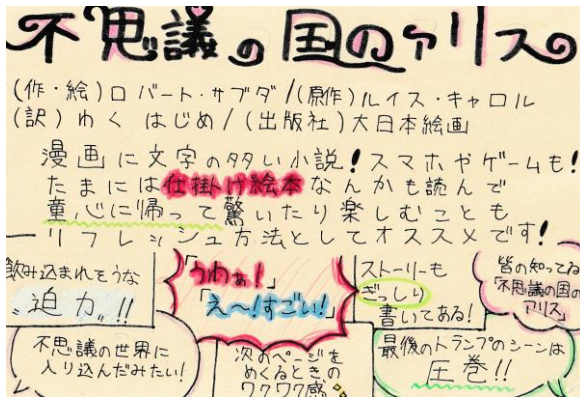 不思議の国のアリス
(作・絵)ロバート・サブダ/(原作)ルイス・キャロル
(訳)わく はじめ/(出版社)大日本絵画
漫画に文字の多い小説!スマホやゲームも!
たまには仕掛け絵本なんかも読んで
童心に帰って驚いたり楽しむことも
リフレッシュ方法としてオススメです!
飲み込まれそうな
迫力!!
「うわぁ!」
「え〜!すごい!」
ストーリーも
ぎっしり
書いてある!
皆の知ってる
「不思議の国の
アリス」
不思議の世界に
入り込んだみたい!
次のページを
めくるときの
ワクワク感
最後のトランプのシーンは
圧巻!!